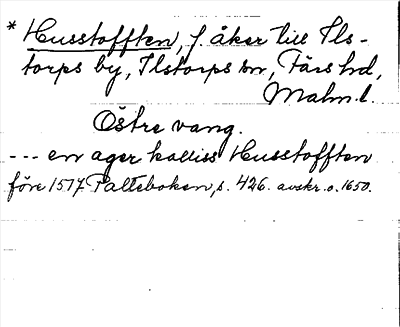 * Husstofften, f. åker till Ils-
torps by, Ilstorps sn, Färs hd,
Malm. l.
Östre vang.
--- en ager kalliss Husstofften
före 1517. Palteboken, s. 426. avskr. o. 1650.